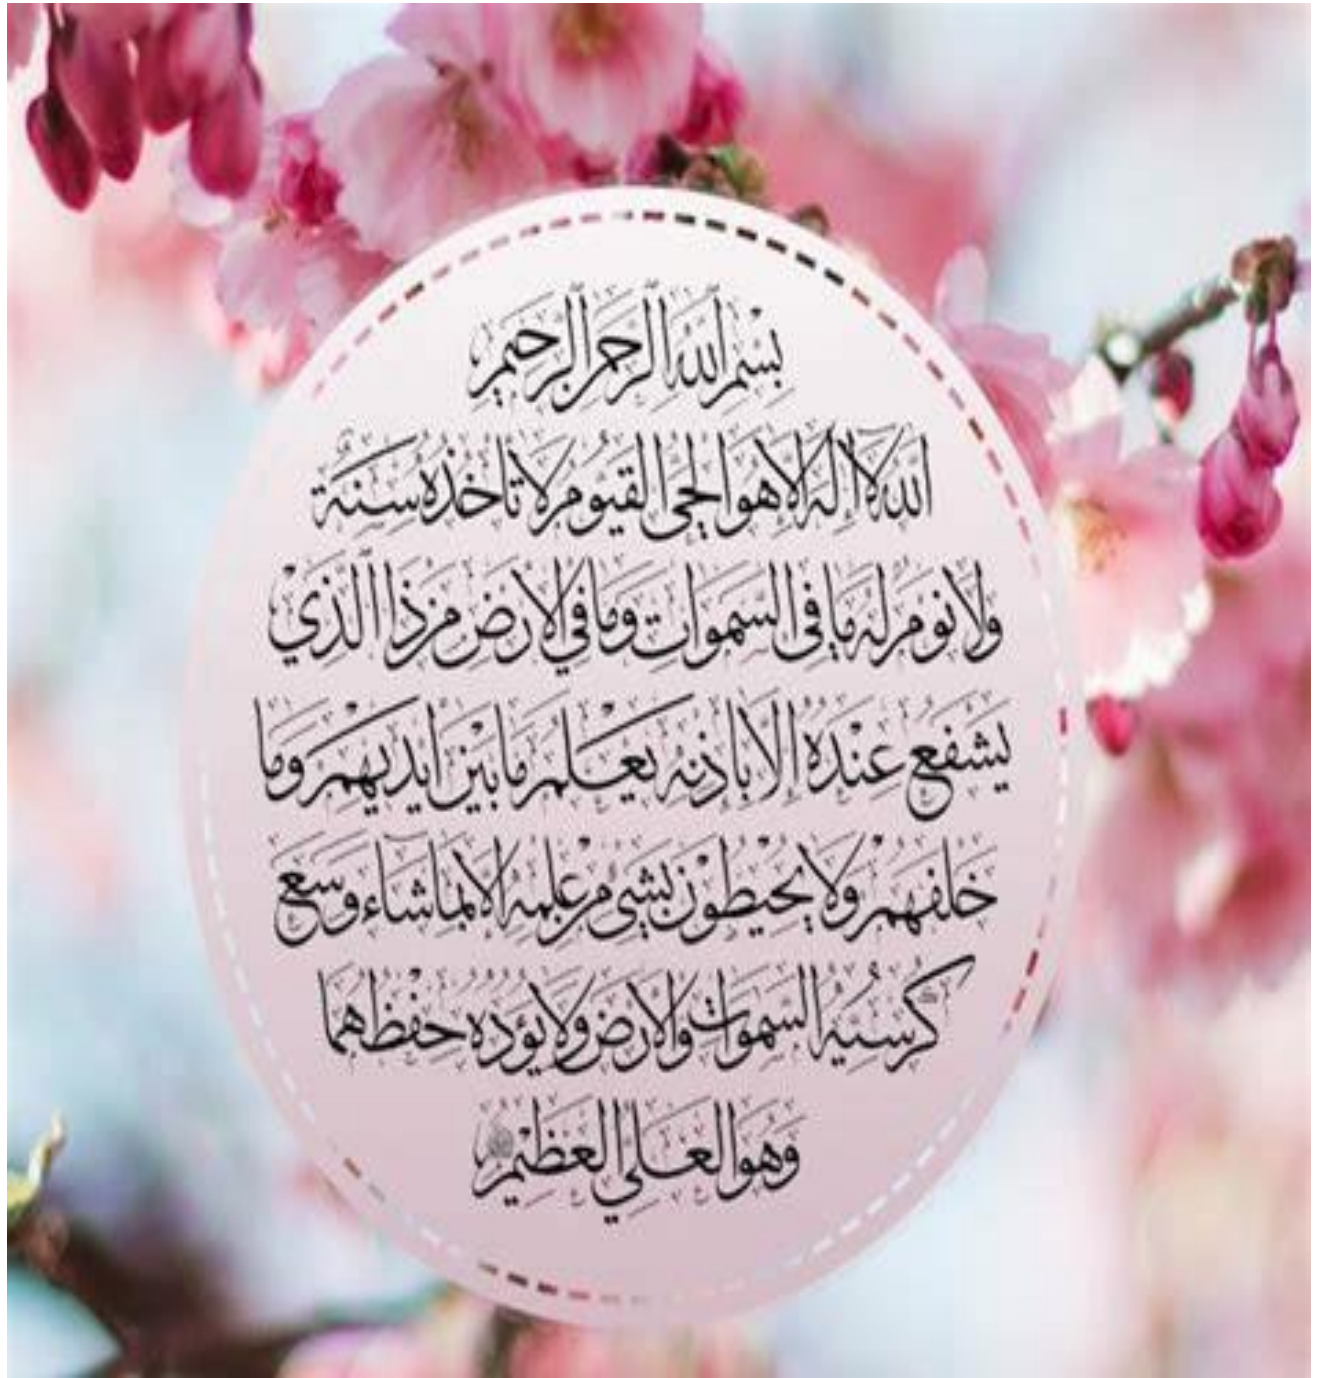 بِسْمِ اللهِ الرَّحْمٰنِ الرَّحِيْمِ
اَللهُ لَآ اِلٰهَ اِلَّا هُوَ الْحَيُّ الْقَيُّومُ لَا تَأْخُذُهُ سِنَةٌ
وَلَا نَوْمٌ لَهُ مَا فِي السَّمٰوَاتِ وَمَا فِي الْاَرْضِ مَنْ ذَا الَّذِيْ
يَشْفَعُ عِنْدَهُ اِلَّا بِاِذْنِهِ يَعْلَمُ مَا بَيْنَ اَيْدِيْهِمْ وَمَا
خَلْفَهُمْ وَلَا يُحِيْطُوْنَ بِشَيْءٍ مِنْ عِلْمِهِ اِلَّا بِمَا شَآءَ وَسِعَ
كُرْسِيُّهُ السَّمٰوَاتِ وَالْاَرْضَ وَلَا يَؤُدُهُ حِفْظُهُمَا
وَهُوَ الْعَلِيُّ الْعَظِيْمُ